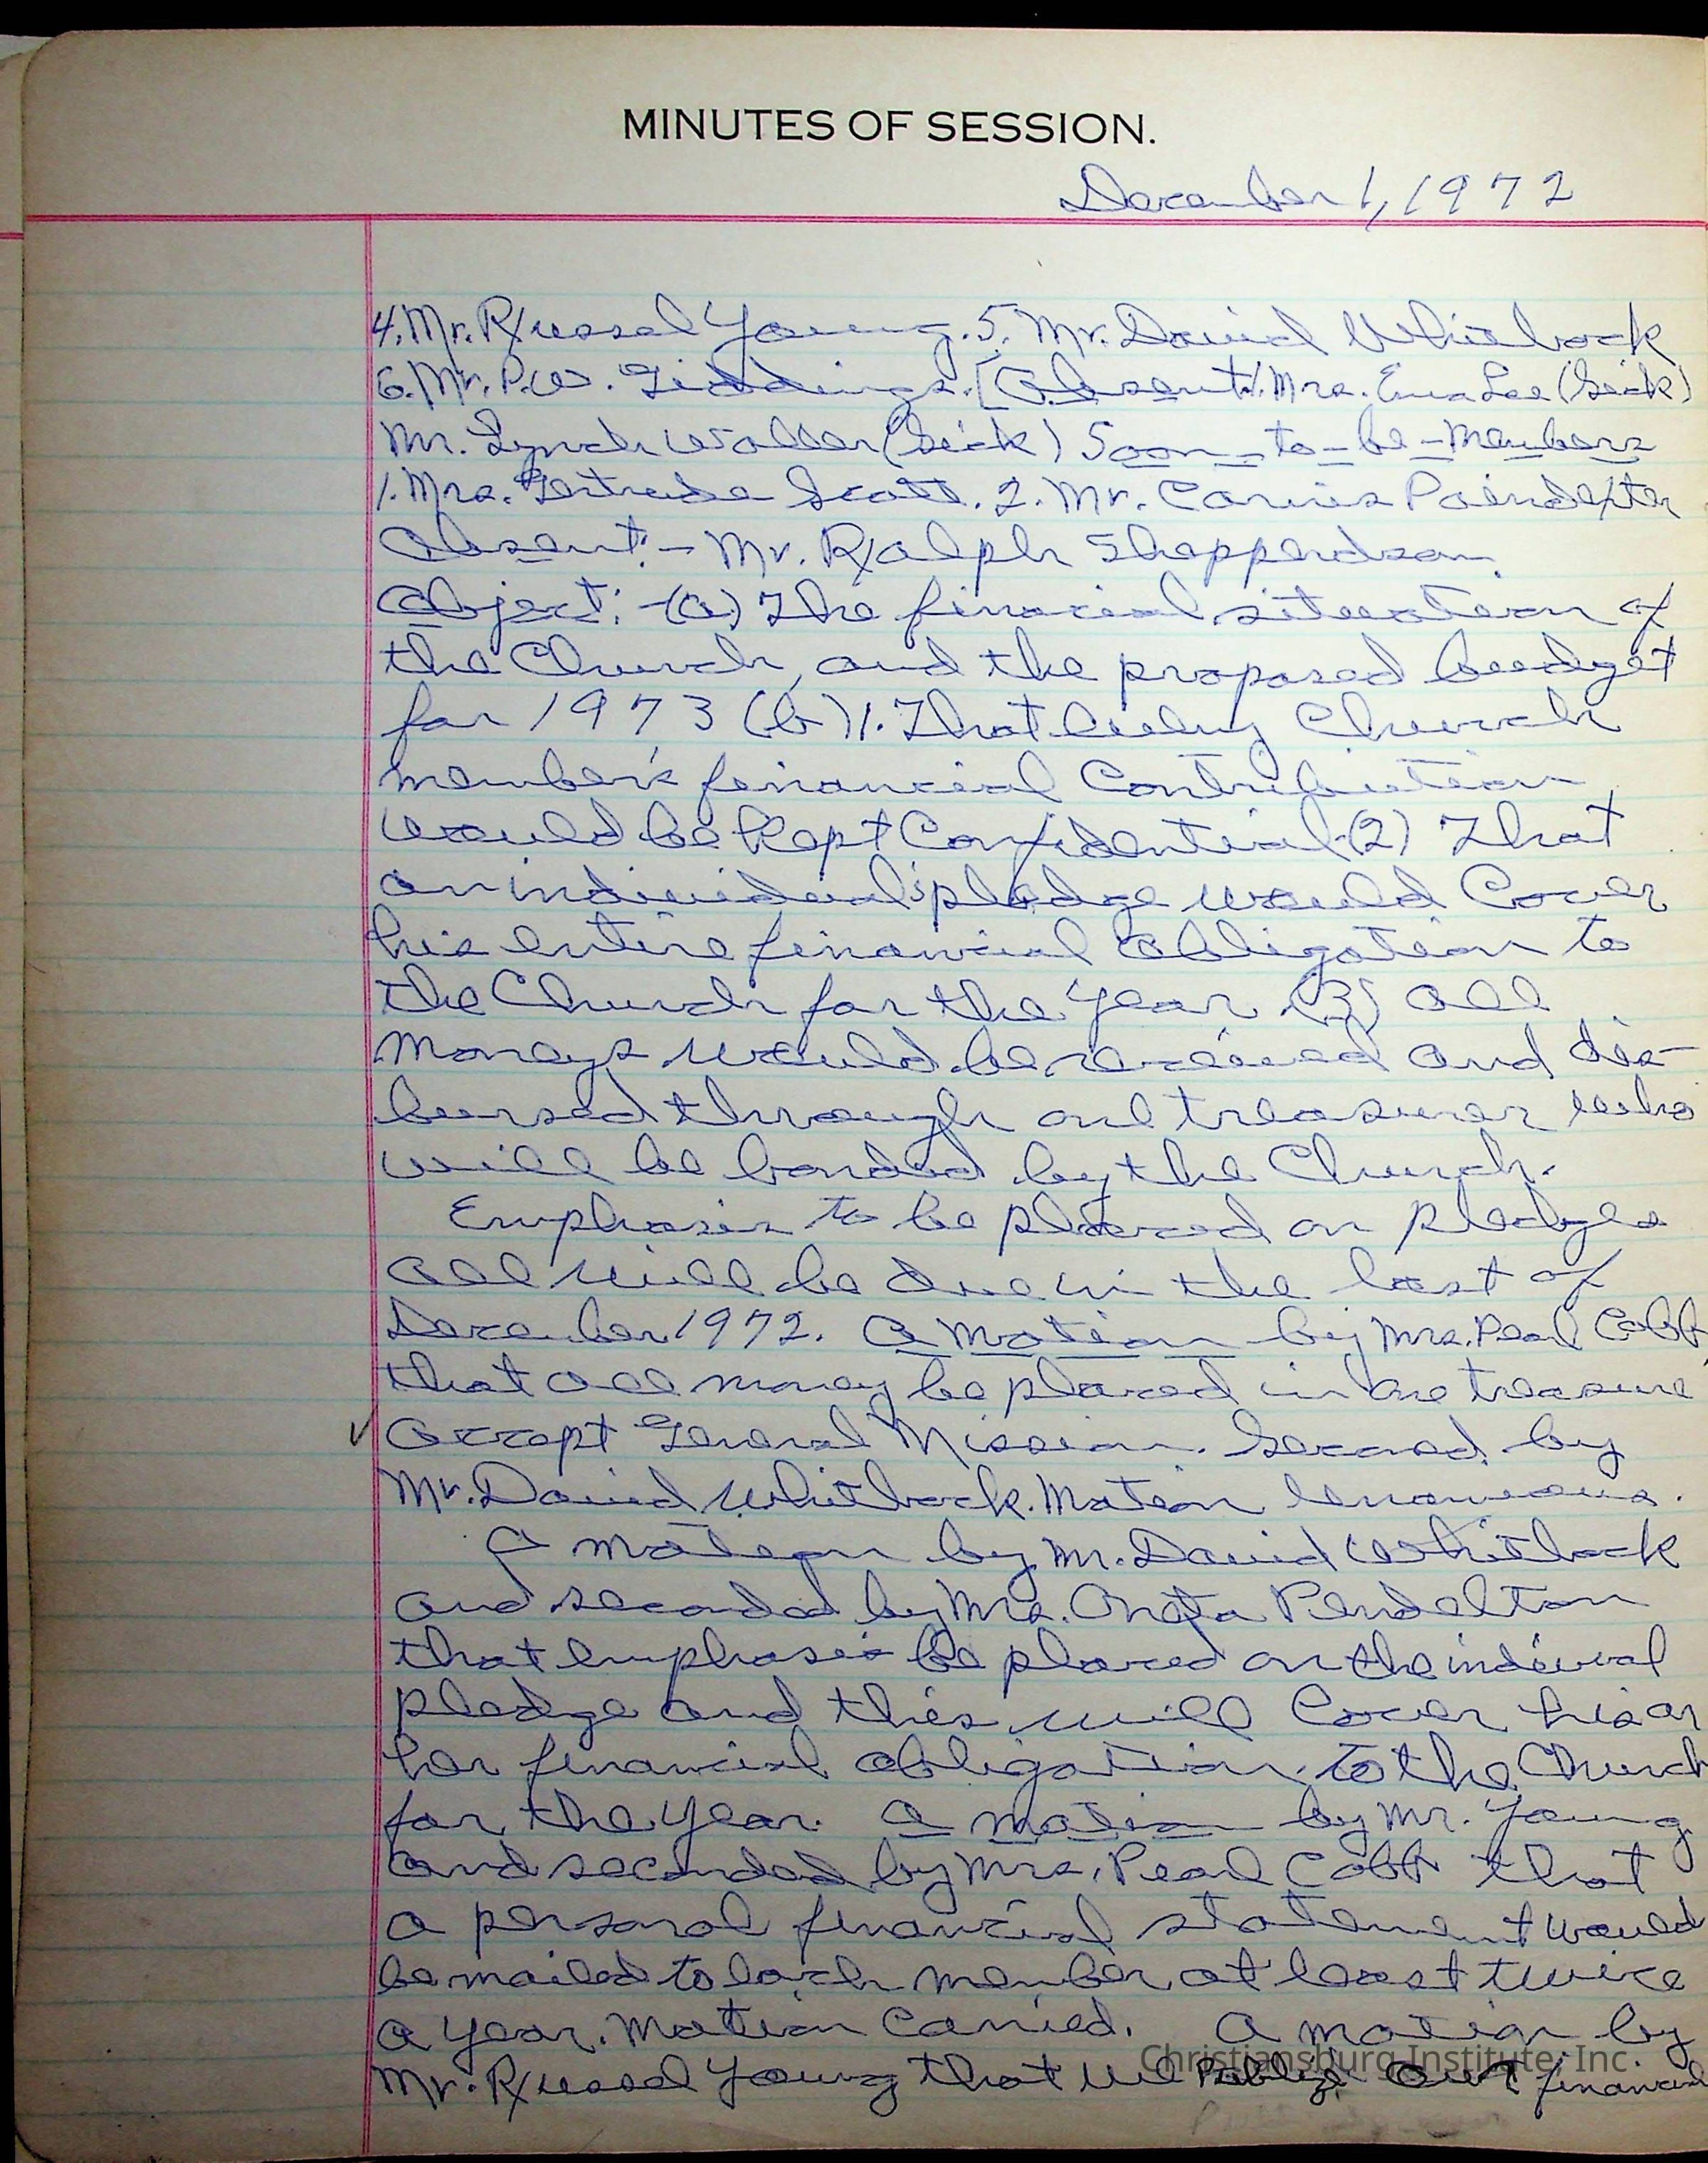 MINUTES OF SESSION.
December 1, 1972
4. Mr. Russel Young. 5. Mr. David Whitlock
6. Mr. P.W. Giddings. [Absent: 1. Mrs. Eva Lee (Sick)
Mr. Lynch Waller (Sick) Soon-to-be-Members
1. Mrs. Gertrude Scott. 2. Mr. Poindexter
Absent: - Mr. Ralph Shepperdson
Object: - (a) The finacial situation of
the Church, and the proposed budget
for 1973 (b) 1. That every Church
member's financial Contribution
would be Kept Confidential (2) That
an individual's pledge would Cover
his entire financial obligation to
the Church for the year. (3) all
moneys would be received and dis-
bursed through one treasurer who
will be bonded by the Church.
Emphasis to be placed on pledges
all will be due in the last of
December 1972. A Motion by Mrs. Pearl Cobb,
that all money be placed in one treasure
✓ except General Mission. Second by
Mr. David Whitlock. Motion
A motion by Mr. David Whitlock
and seconded by Mrs. Oneta Pendelton
that emphasis be placed on the
pledge and this will Cover his or
her financial obligation to the Church
for the year. A motion by Mr. Young
and seconded by Mrs. Pearl Cobb that
a personal financial statement would
be mailed to each member at least twice
a year. Motion Carried. A motion by
Mr. Russel Young that we our financial
Christiansburg Institute, Inc.